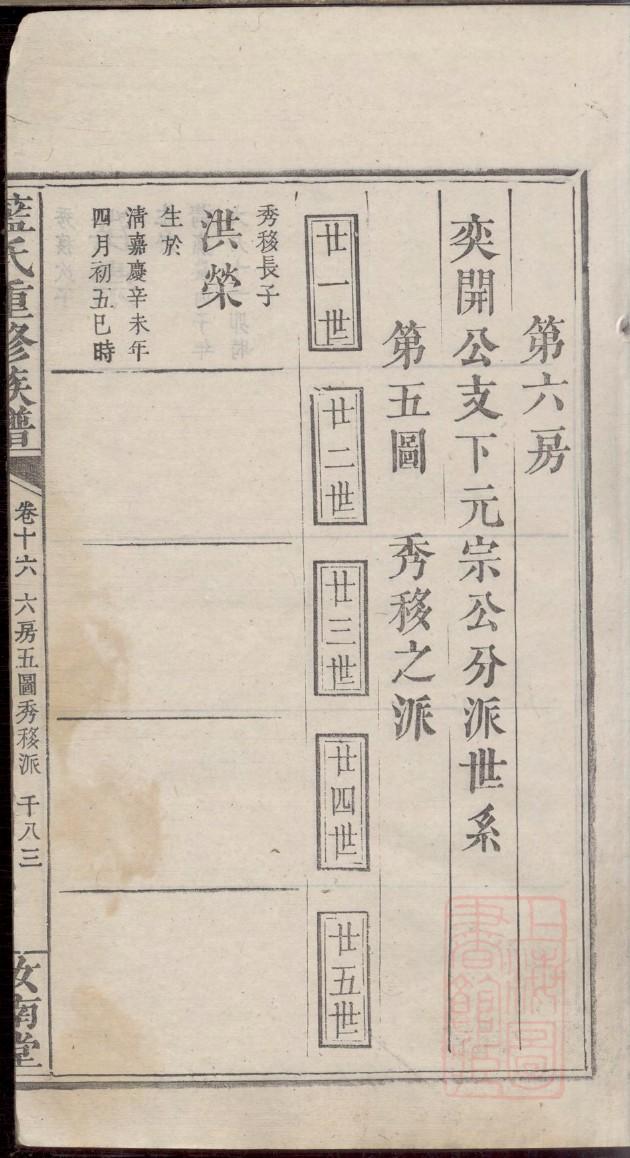 第六房
奕開公支下元宗公分派世系
第五圖 秀移之派
廿一世
廿二世
廿三世
廿四世
廿五世
秀移長子
洪榮
生於
清嘉慶辛未年
四月初五巳時
藍氏重修族譜
卷十六 六房五圖秀移派 千八三
汝南堂
上海圖書館藏